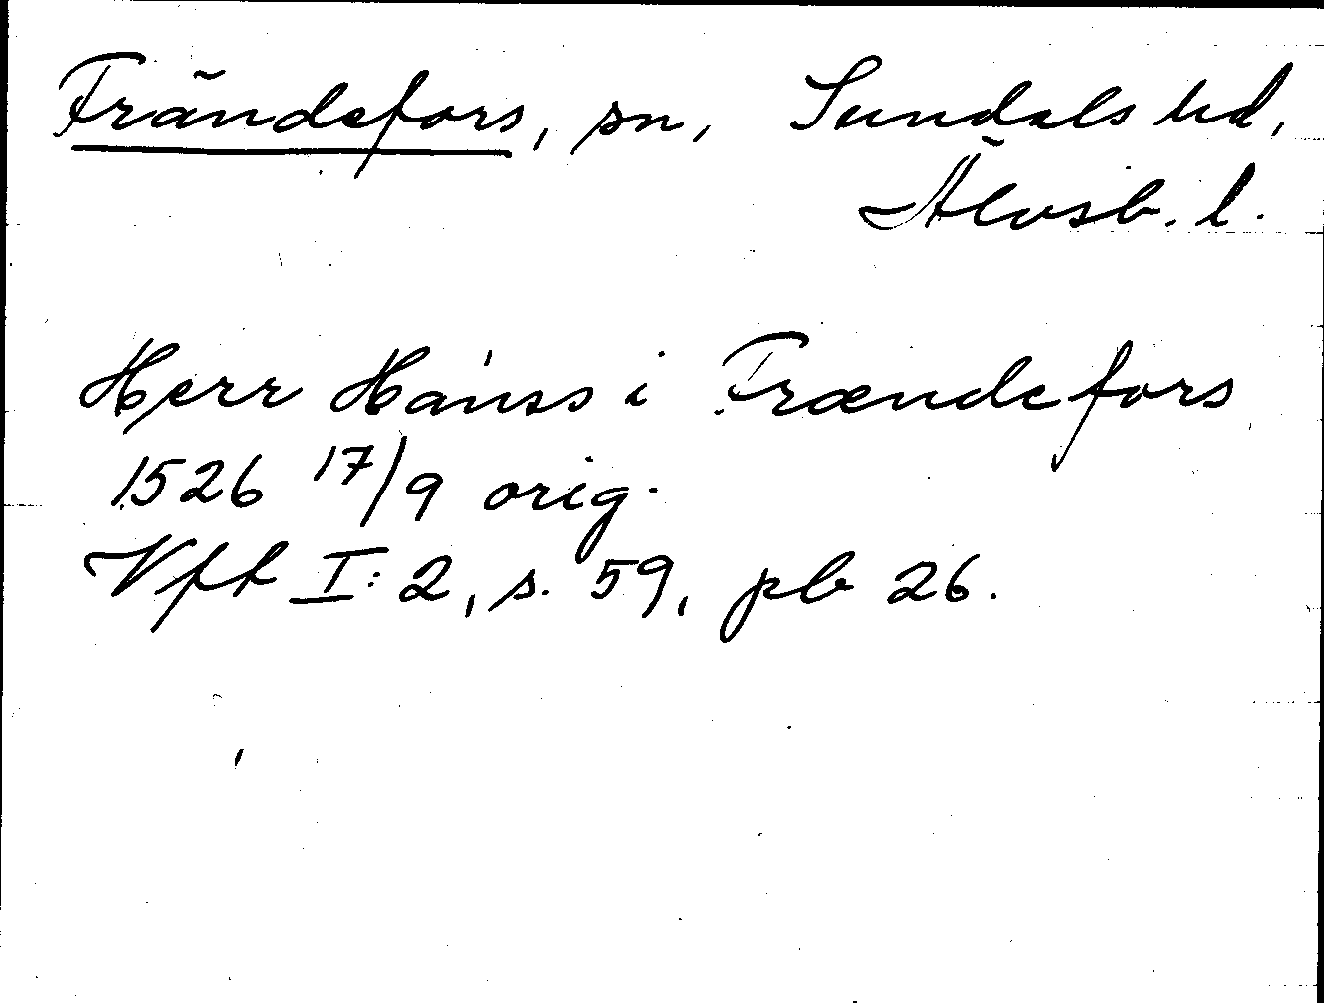 Frändefors, sn, Sundals hd,
Älvsb. l.
Herr Hánss i Frændefors
1526 17/9 orig.
Vfft I:2, s. 59, pb 26.